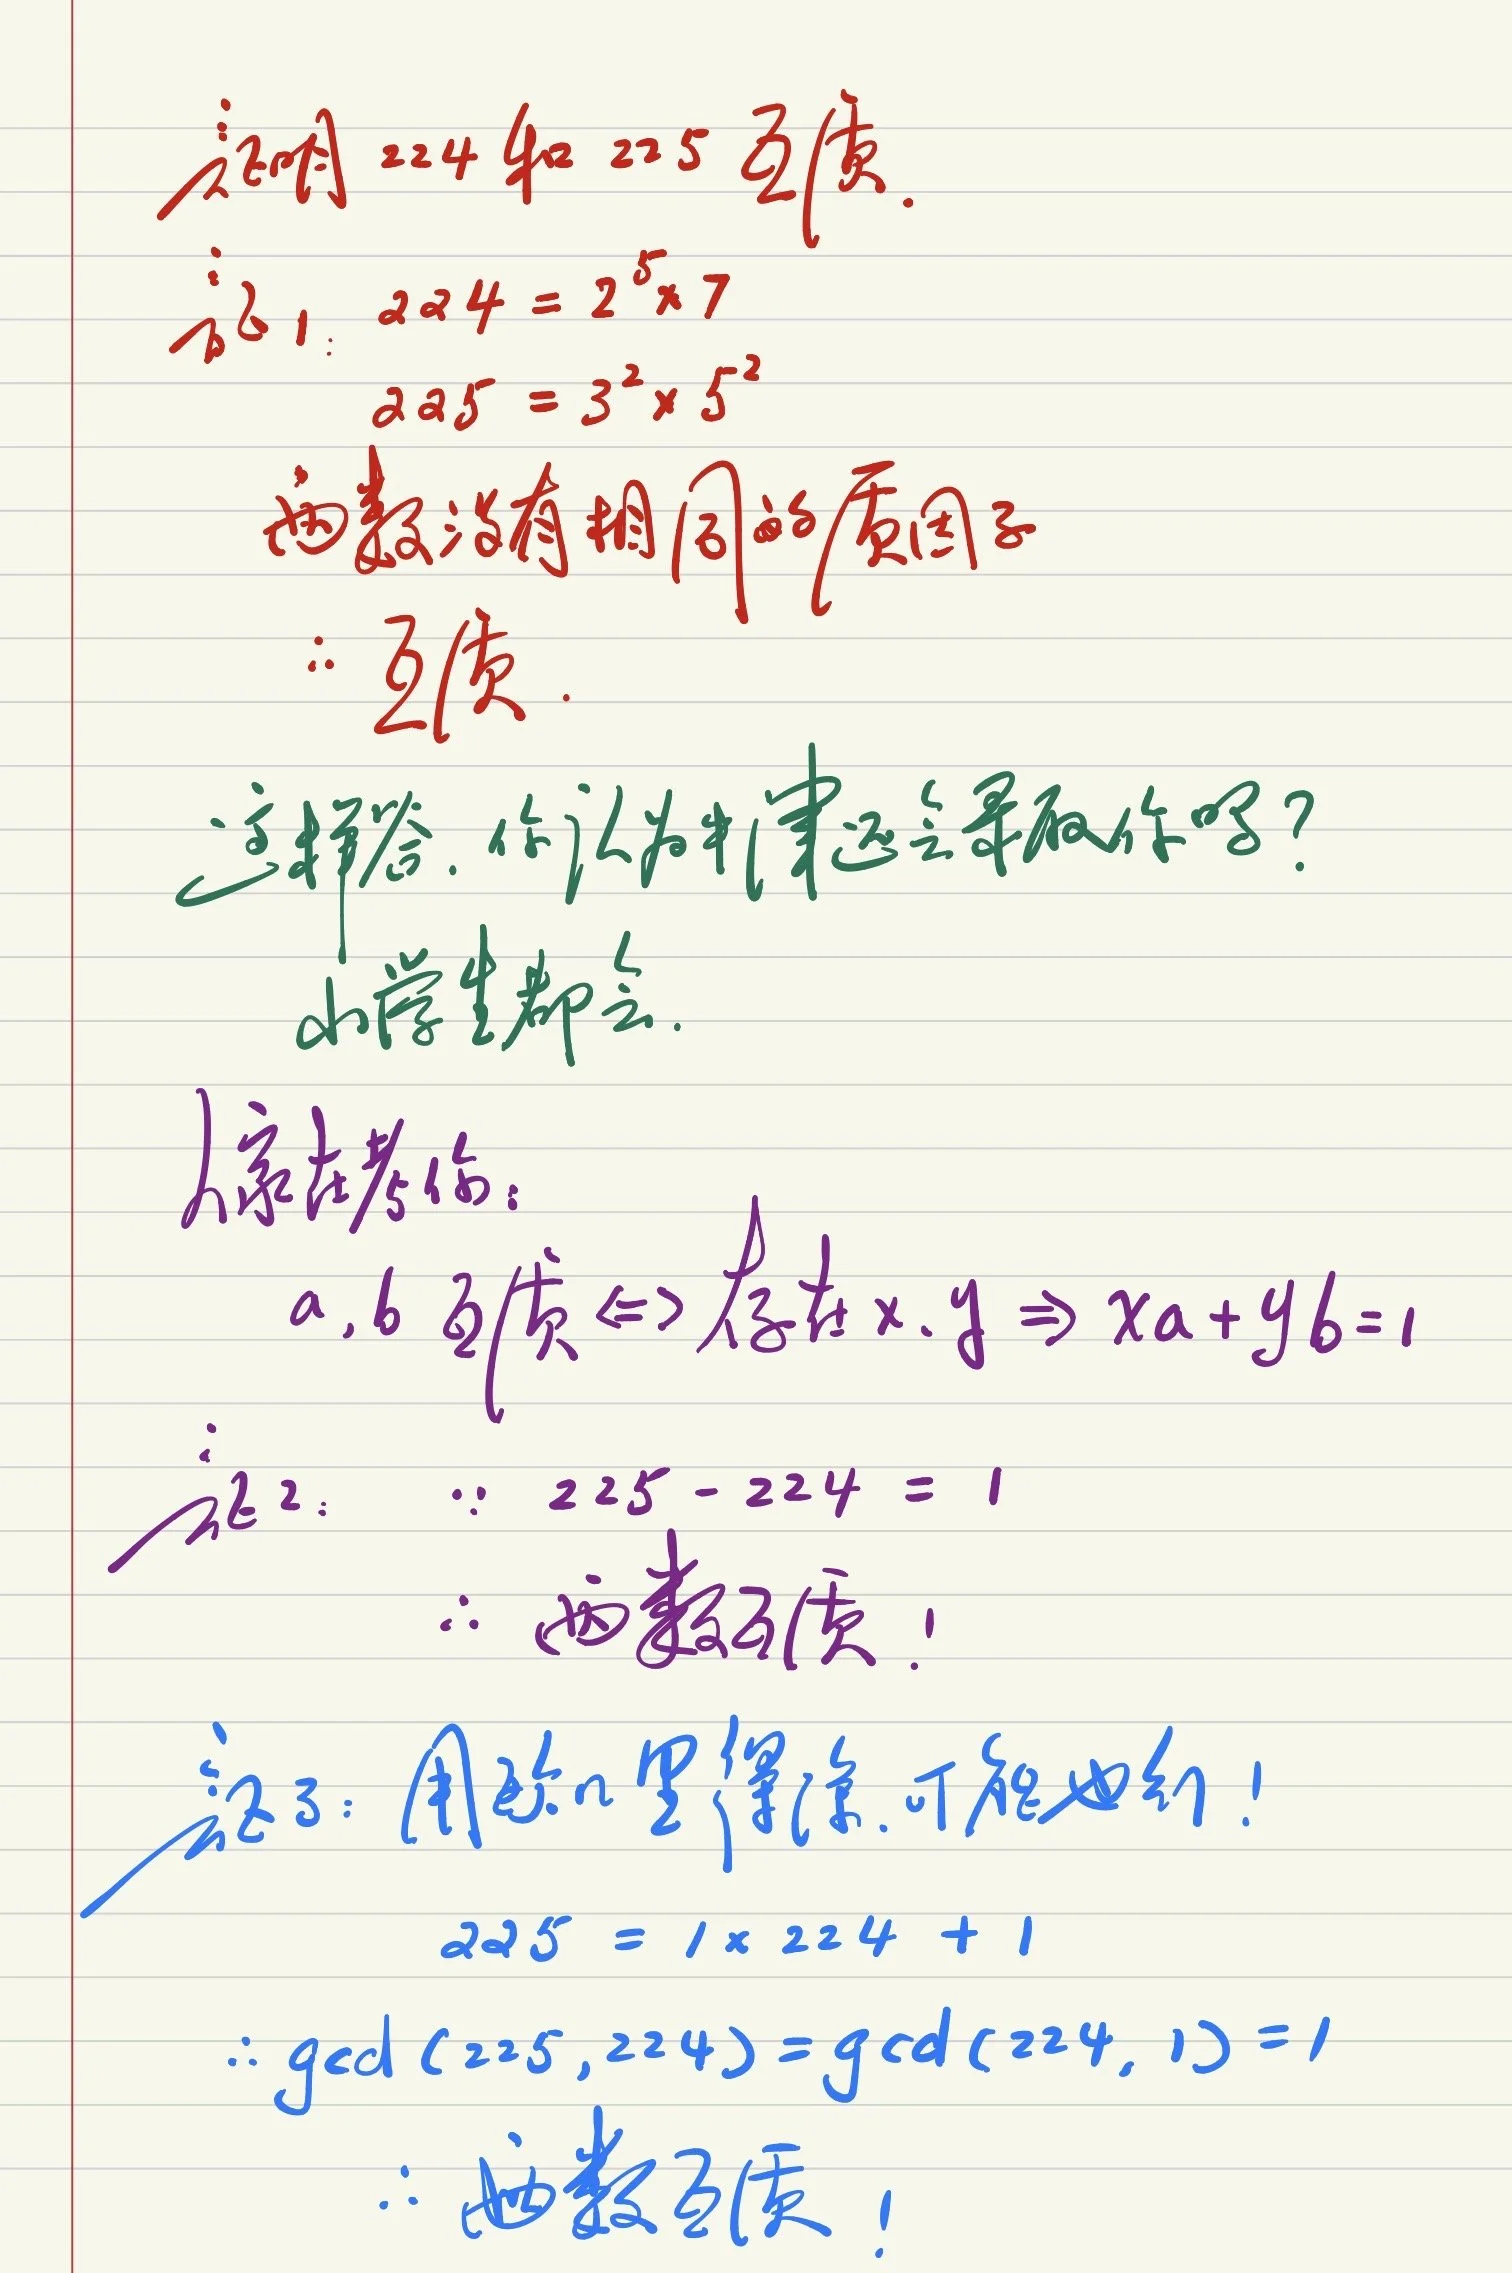 证明 224 和 225 互质.
证1: 224 = 2⁵×7
225 = 3²×5²
两数没有相同的质因子
∴ 互质.
这样答.你认为牛津还会录取你吗?
小学生都会.
人家在考你:
a,b 互质 <=> 存在 x、y => xa+yb=1
证2: ∵ 225-224 = 1
∴ 两数互质!
证3: 用欧几里得除.可能也行!
225 = 1×224 + 1
∴ gcd(225,224)=gcd(224,1)=1
∴ 两数互质!